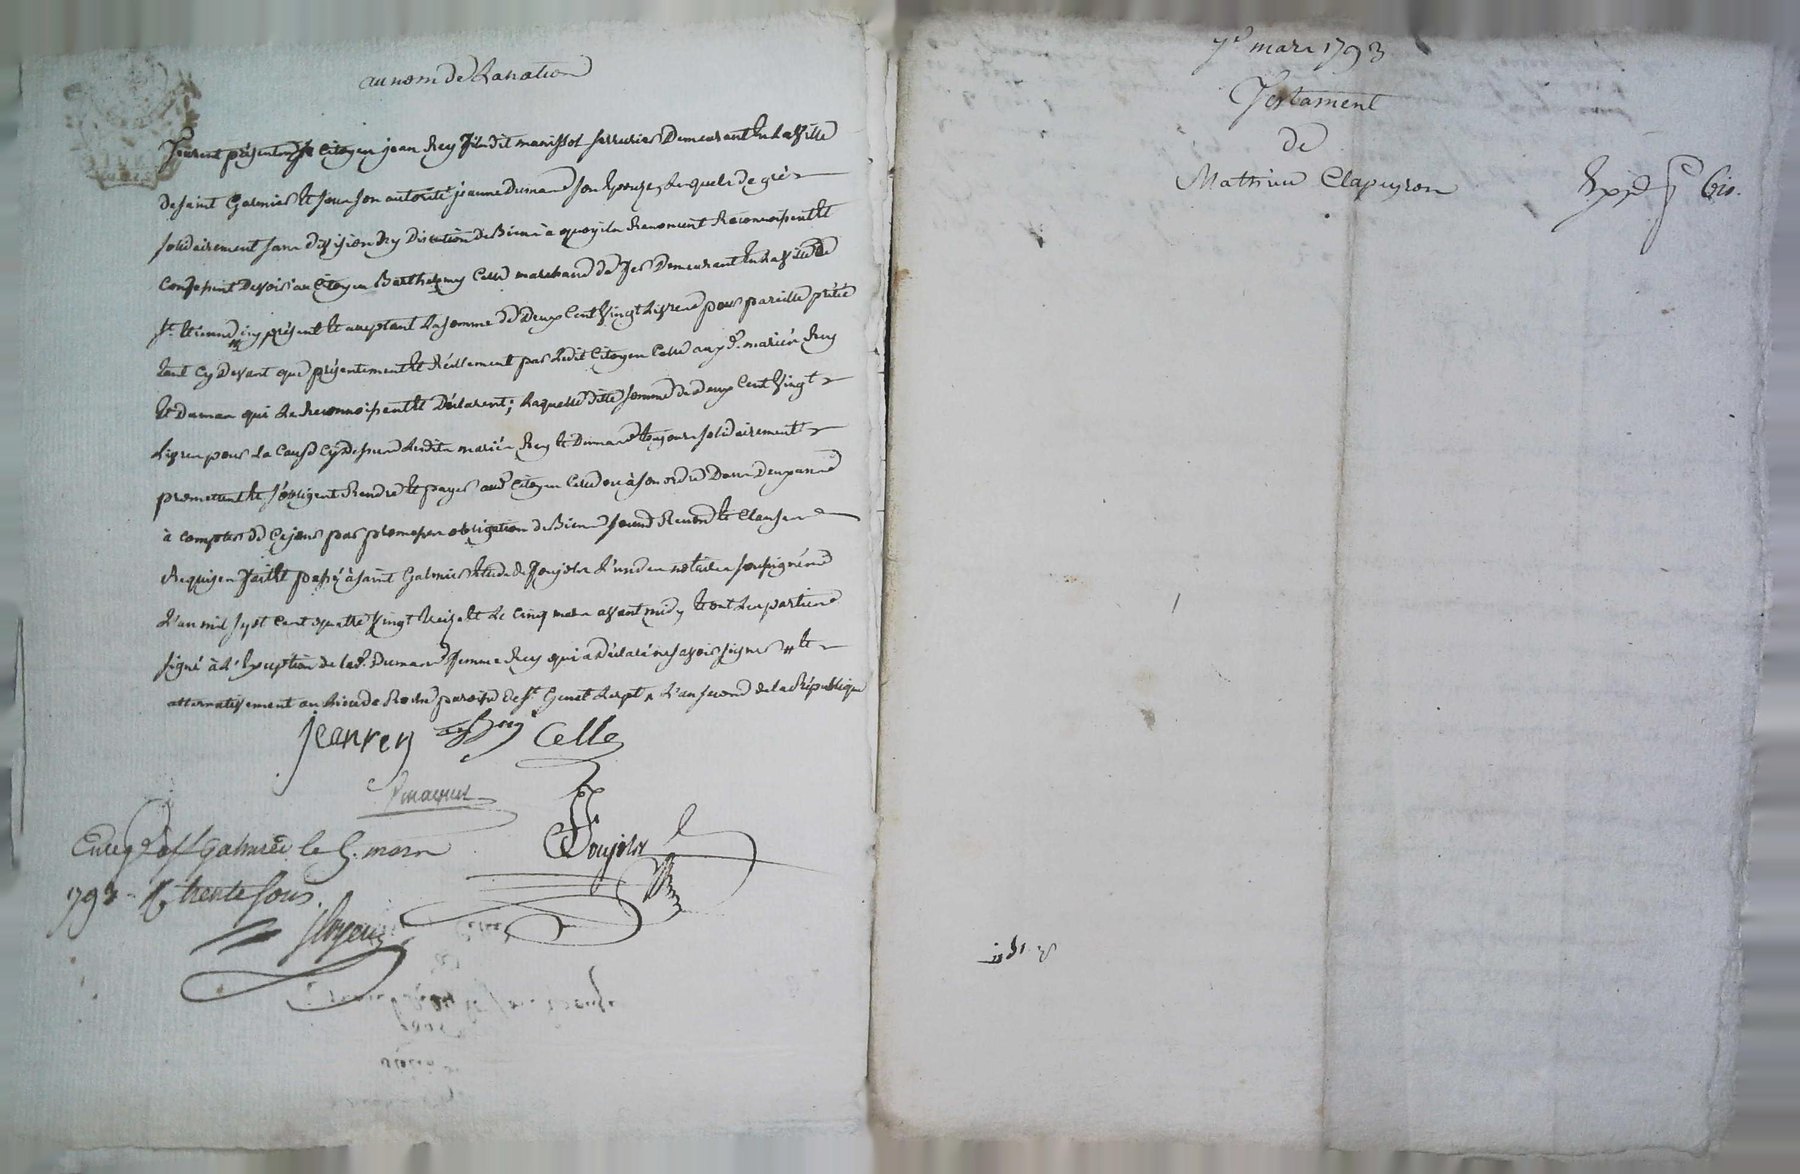 au nom de La nation
furent présents Le Citoyen jean Rey fils dit marissol serrurier Demeurant En La Ville
de saint Galmier Et sous son autorité jeanne Dumand son Epouse, Lesquels de gré
solidairement sans division Ny Discution De Biens à quoy ils Renoncent Reconnoissent Et
Confessent Devoir au Citoyen Barthelemy Celle marchand de fer Demeurant En La Ville de
St. Etienne icy présent Et acceptant La somme de Deux Cent Vingt Livres pour pareille prêtée
tant Cy Devant que présentement Et Réellement par Ledit Citoyen Celle aux d. mariés Rey
Et Duman qui Le Reconnoissent Et Déclarent; Laquelle ditte somme de deux Cent Vingt
Livres pour La Cause Cy Dessus Lesdits mariés Rey Et Dumand toujours solidairement
promettent Et s'obligent Rendre Et payer aud. Citoyen Celle ou à son ordre Dans Deux années
à compter de Ce jour par promesse obligation de Biens Et Clauses
Requises fait Et passé à saint Galmier Etude de Poujols L'un des notaires soussignés
L'an mil sept Cent quatre Vingt treize Et Le Cinq mars avant midy Et ont Les parties
signé à L'Exception de lad. Dumand femme Rey qui a Déclaré ne savoir signer Et
alternativement au Lieu de paroisse De St. Genet Lerpt L'an second de la République
jean rey Celle
Poujols
Enreg. à St Galmier le 5. mars
1793 - R. trente sous.
7e mars 1793
Testament
de
Mathieu Clapeyron